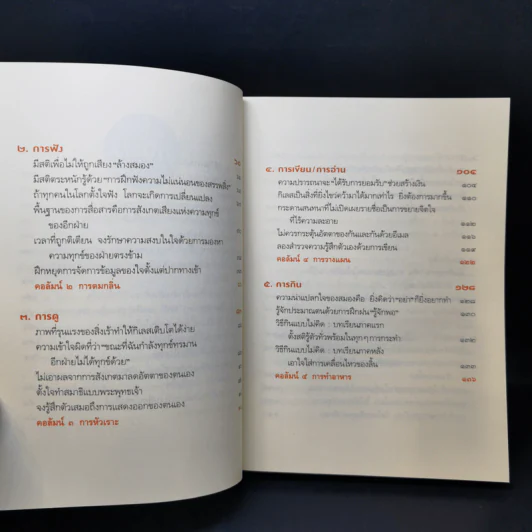 ๒. การฟัง
มีสติเพื่อไม่ให้ถูกเสียง "ล้างสมอง"
มีสติตระหนักรู้ด้วย "การฝึกฟังความไม่แน่นอนของสรรพสิ่ง"
ถ้าทุกคนในโลกตั้งใจฟัง โลกจะเกิดการเปลี่ยนแปลง
พื้นฐานของการสื่อสารคือการสังเกตเสียงแห่งความทุกข์
ของอีกฝ่าย
เวลาที่ถูกติเตียน จงรักษาความสงบในใจด้วยการมองหา
ความทุกข์ของฝ่ายตรงข้าม
ฝึกหยุดการจัดการข้อมูลของใจตั้งแต่ปากทางเข้า
คอลัมน์ ๒ การดมกลิ่น
๓. การดู
ภาพที่รุนแรงของสิ่งเร้าทำให้กิเลสเติบโตได้ง่าย
ความเข้าใจผิดที่ว่า "ขณะที่ฉันกำลังทุกข์ทรมาน
อีกฝ่ายไม่ได้ทุกข์ด้วย"
ไม่เอาผลจากการสังเกตมาลดอัตตาของตนเอง
ตั้งใจทำสมาธิแบบพระพุทธเจ้า
จงรู้สึกตัวเสมอถึงการแสดงออกของตนเอง
คอลัมน์ ๓ การหัวเราะ
๔. การเขียน/การอ่าน ๑๐๔
ความปรารถนาจะ "ได้รับการยอมรับ" ช่วยสร้างเงิน ๑๐๔
กิเลสเป็นสิ่งที่ยิ่งไขว่คว้ามาได้มากเท่าไร ยิ่งต้องการมากขึ้น ๑๑๐
กระดานสนทนาที่ไม่เปิดเผยรายชื่อเป็นการขยายจิตใจ
ที่ไร้ความละอาย ๑๑๒
ไม่ควรกระตุ้นอัตตาของกันและกันด้วยอีเมล
ลองสำรวจความรู้สึกตัวเองด้วยการเขียน
คอลัมน์ ๔ การวางแผน ๑๒๒
๕. การกิน ๑๒๘
ความน่าแปลกใจของสมองคือ ยิ่งคิดว่า "อย่า" ก็ยิ่งอยากทำ ๑๒๘
รู้จักประมาณตนด้วยการฝึกฝน "รู้จักพอ"
วิธีกินแบบไม่คิด : บทเรียนภาคแรก
ตั้งสติรู้ตัวทั่วพร้อมในทุกๆ การกระทำ
วิธีกินแบบไม่คิด : บทเรียนภาคหลัง
เอาใจใส่การเคลื่อนไหวของลิ้น
คอลัมน์ ๕ การทำอาหาร ๑๓๖